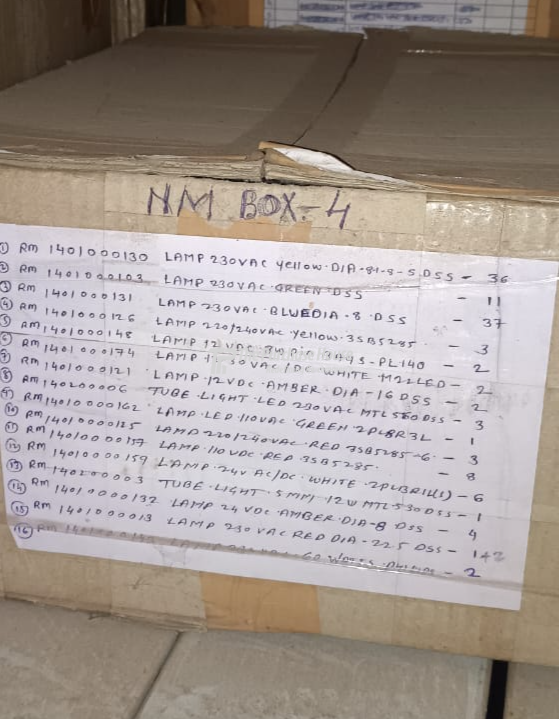 NM BOX-4
① RM 1401000130 LAMP 230VAC Yellow.DIA-81-8-5.DSS - 36
② RM 1401000103 LAMP 230VAC.GREEN.DSS - 11
③ RM 1401000131 LAMP 230VAC.BLUEDIA-8.DSS - 37
④ RM 1401000126 LAMP 220/240VAC Yellow.3SB5285 - 3
⑤ RM 1401000148 LAMP 12 VDC 3449-PL140 - 2
⑥ RM 1401000174 LAMP VAC/DC WHITE M22LED - 2
⑦ RM 1401000121 LAMP.12VDC.AMBER.DIA-16 DSS - 2
⑧ RM 140200006 TUBE-LIGHT.LED 230VAC MTL 560DSS - 3
⑨ RM 14010000162 LAMP.LED.110VAC.GREEN.2PLBR3L - 1
⑩ RM 14010000125 LAMP 220/240VAC.RED 3SB5285-6 - 3
⑪ RM LAMP.110VDC.RED.3SB5285. - 8
⑫ RM 14010000159 LAMP.24V AC/DC.WHITE.2PLBR1L(L) - 6
⑬ RM 140200003 TUBE-LIGHT.5MM.12W MTL530DSS - 1
⑭ RM 14010000132 LAMP 24 VDC.AMBER.DIA-8 DSS - 4
⑮ RM 1401000013 LAMP 230VAC RED DIA-22.5 DSS - 142
⑯ RM 60 - 2